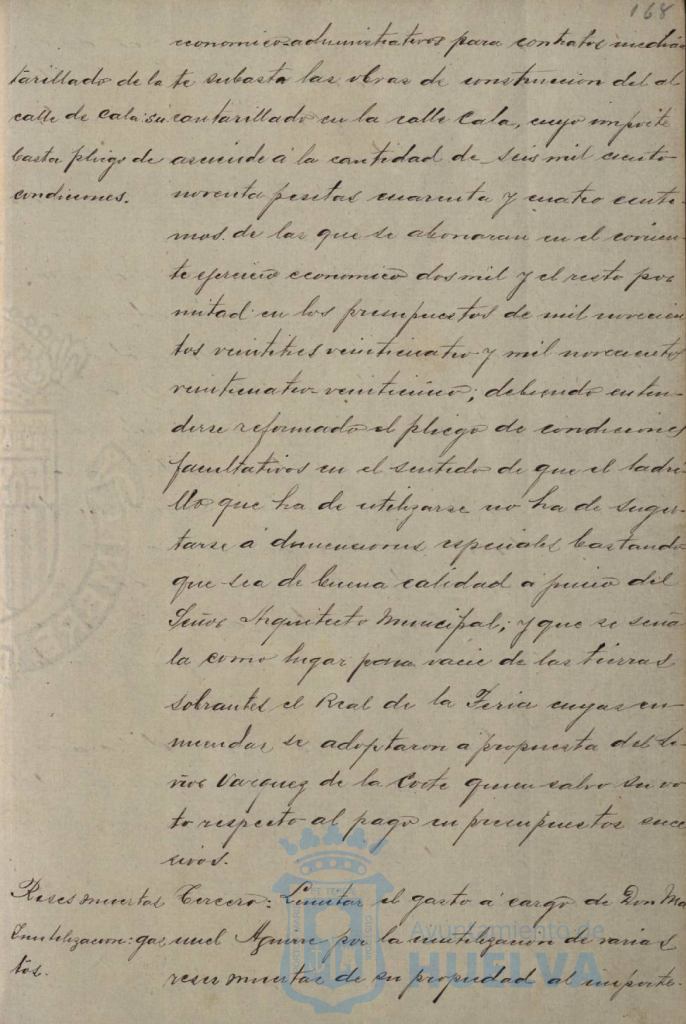 168
economico-administrativos para contratar median
tarillado de la te subasta las obras de construccion del al
calle de Cala: su cantarillado en la calle Cala, cuyo importe
basta pliego de asciende á la cantidad de seis mil ciento
condiciones. noventa pesetas cuarenta y cuatro centi-
mos de las que se abonaran en el corrien-
te ejercicio economico dos mil y el resto por
mitad en los presupuestos de mil novecien
tos veintitres veinticuatro y mil novecientos
veinticuatro-veinticinco; debiendo enten-
derse reformado el pliego de condiciones
facultativos en el sentido de que el ladri-
llo que ha de utilizarse no ha de suger-
tarse á dimenciones especiales bastando
que sea de buena calidad a juicio del
Señor Arquitecto Municipal; y que se seña
la como lugar para vacie de las tierras
sobrantes el Real de la Feria cuyas en-
miendas se adoptaron a propuesta del Se-
ñor Vazquez de la Corte quien salvo su vo-
to respecto al pago en presupuestos suce-
sivos.
Reses muertas Tercero: Limitar el gasto á cargo de Don Ma
Inutilizacion: gas nuel Aguirre por la inutilización de varias
tos. reses muertas de su propiedad al importe-
Ayuntamiento de
HUELVA